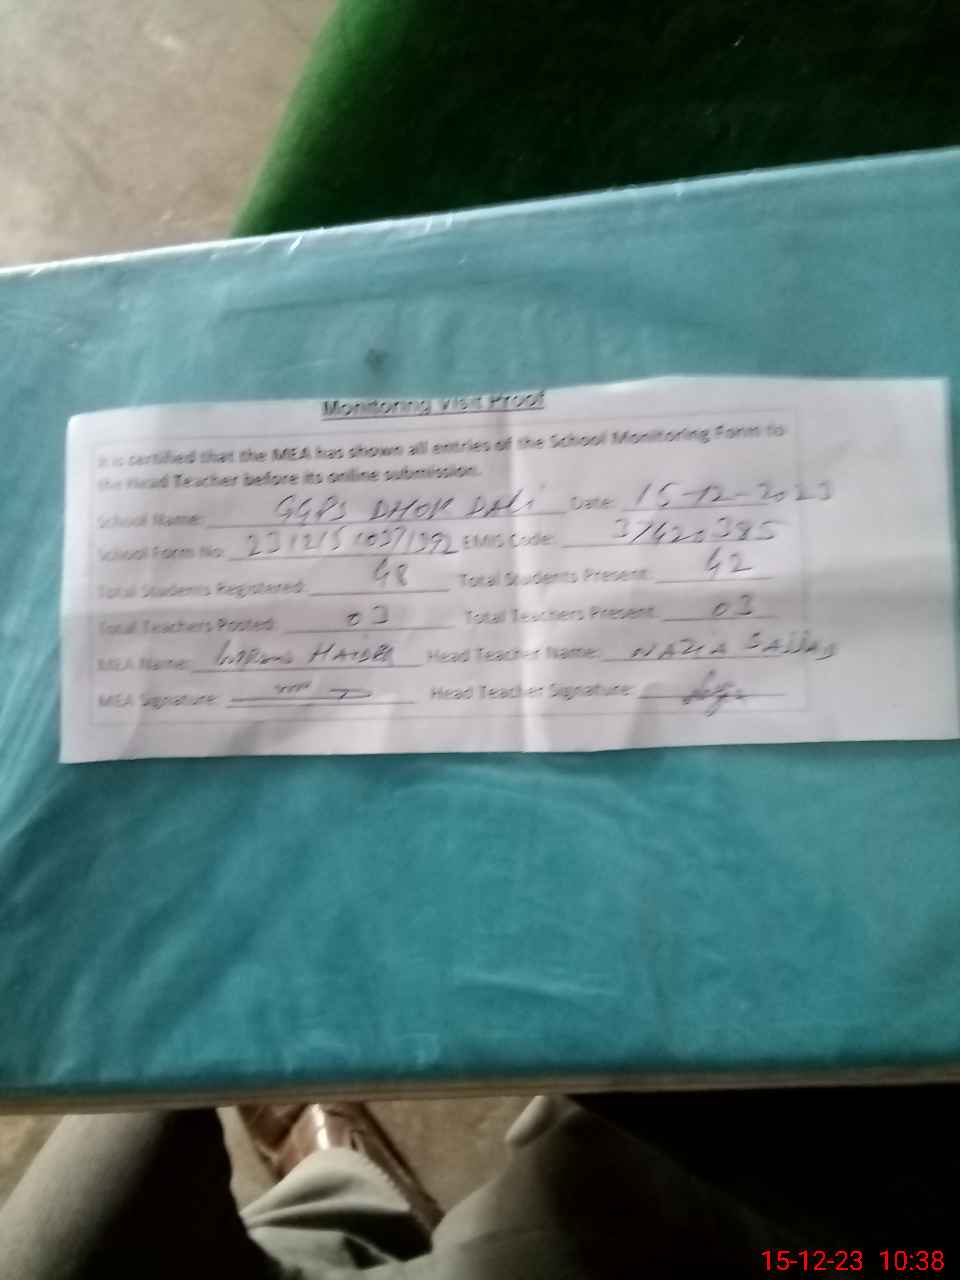 Monitoring Visit Proof
It is certified that the MEA has shown all entries of the School Monitoring Form to
the Head Teacher before its online submission.
School Name: GGPS DHOK DALi Date: 15-12-2023
School Form No: EMIS Code: 37420385
Total Students Registered: 48 Total Students Present: 42
Total Teachers Posted: 03 Total Teachers Present: 03
MEA Name: HAIDER Head Teacher Name: NAZIA SAJJAD
MEA Signature: Head Teacher Signature:
15-12-23 10:38